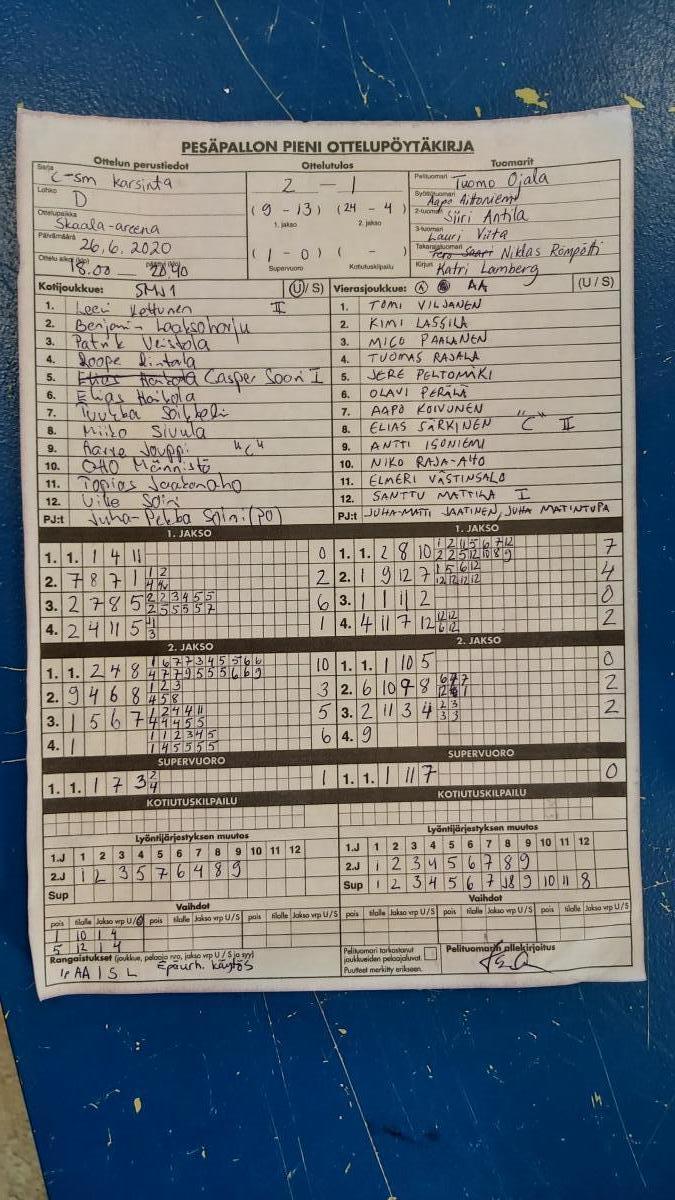 PESÄPALLON PIENI OTTELUPÖYTÄKIRJA
Ottelun perustiedot Ottelutulos Tuomarit
Sarja C-sm karsinta 2 - 1 Pelituomari Tuomo Ojala
Lohko D Syöttötuomari Aapo Aittoniemi
Ottelupaikka Skaala-areena (9 - 13) (24 - 4) 2-tuomari Siiri Antila
1. jakso 2. jakso 3-tuomari Lauri Viita
Päivämäärä 26.6.2020 (1 - 0) ( - ) Takarajatuomari Niklas Römpötti
Ottelu alkoi (klo) 18.00 päättyi (klo) Supervuoro Kotiutuskilpailu Kirjuri Katri Lamberg
Kotijoukkue: SMJ1 (U/S) Vierasjoukkue: AA (U/S)
1. Leevi Kettunen II 1. TOMI VILJANEN
2. Benjamin Laaksoharju 2. KIMI LASSILA
3. Patrik Veistola 3. MICO PAALANEN
4. Roope Rintala 4. TUOMAS RAJALA
5. Casper Soini I 5. JERE PELTOMÄKI
6. Elias Haikola 6. OLAVI PERÄLÄ
7. 7. AAPO KOIVUNEN
8. Miiko Sivula 8. ELIAS SÄRKINEN "C" II
9. Aarre Jouppi "C" 9. ANTTI ISONIEMI
10. Otto Männistö 10. NIKO RAJA-AHO
11. Topias 11. ELMERI VÄSTINSALO
12. Ville Soini 12. SANTTU MATTILA I
PJ:t Juha-Pekka Soini (PO) PJ:t JUHA-MATTI JAATINEN, JUHA MATINTUPA
1. JAKSO 1. JAKSO
1. 1. 1 4 11 0 1. 1. 2 8 10 7
2. 7 8 7 1 2 2. 1 9 12 7 4
3. 2 7 8 5 6 3. 1 1 11 2 0
4. 2 4 11 5 1 4. 4 11 7 12 2
2. JAKSO 2. JAKSO
1. 1. 2 4 8 10 1. 1. 1 10 5 0
2. 9 4 6 8 3 2. 6 10 9 8 2
3. 1 5 6 7 5 3. 2 11 3 4 2
4. 1 6 4. 9
SUPERVUORO SUPERVUORO
1. 1. 1 7 3 1 1. 1. 1 11 7 0
KOTIUTUSKILPAILU KOTIUTUSKILPAILU
Lyöntijärjestyksen muutos Lyöntijärjestyksen muutos
1.J 1 2 3 4 5 6 7 8 9 10 11 12 1.J 1 2 3 4 5 6 7 8 9 10 11 12
2.J 1 2 3 5 7 6 4 8 9 2.J 1 2 3 4 5 6 7 8 9
Sup Sup 1 2 3 4 5 6 7 9 10 11 8
Vaihdot Vaihdot
pois tilalle Jakso vrp U/S pois tilalle Jakso vrp U/S pois tilalle Jakso vrp U/S pois tilalle Jakso vrp U/S pois tilalle Jakso vrp U/S pois tilalle Jakso vrp U/S
1 10 1 4
5 12 1 4
Rangaistukset (joukkue, pelaaja nro, jakso vrp U / S ja syy) Pelituomari tarkastanut joukkueiden pelaajaluvat. Puutteet merkitty erikseen. Pelituomarin allekirjoitus
AA 1 S L Epäurh. käytös